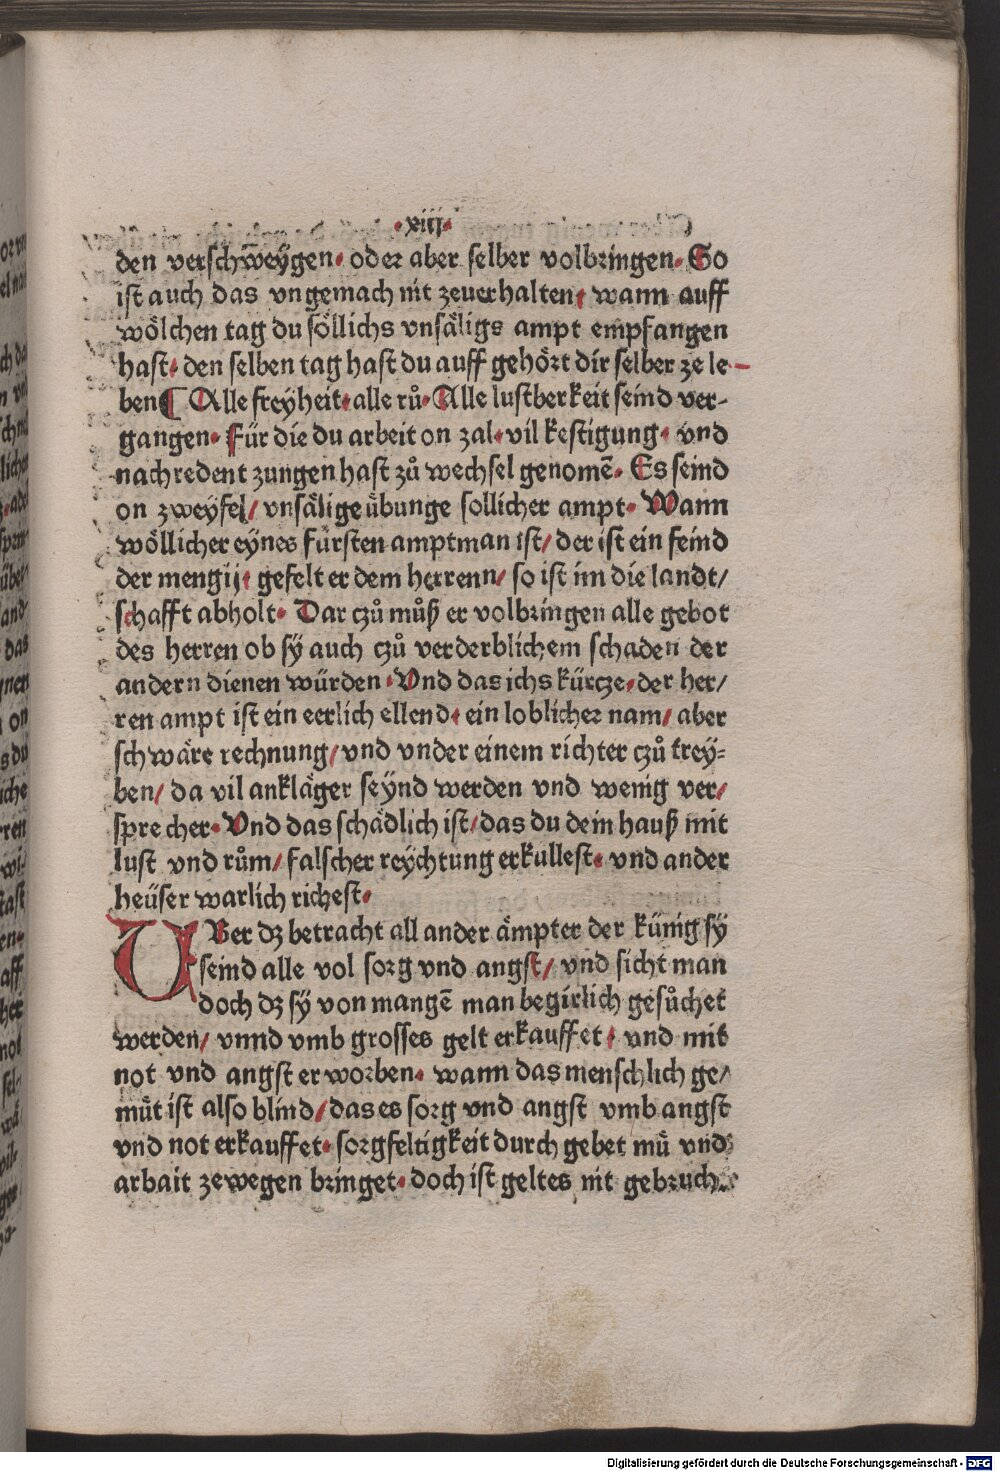 ·xiij·
den verschweygen· oder aber selber volbringen· So
ist auch das vngemach nit zeuerhalten· wann auff
wölchen tag du söllichs vnsäligs ampt empfangen
hast· den selben tag hast du auff gehört dir selber ze le-
ben¶ Alle freyheit· alle rů· Alle lustberkeit seind ver-
gangen· Für die du arbeit on zal· vil kestigung· vnd
nachredent zungen hast zů wechsel genomē· Es seind
on zweyfel/ vnsälige übunge sollicher ampt· Wann
wöllicher eynes fürsten amptman ist/ der ist ein feind
der mengij· gefelt er dem herrenn/ so ist im die landt/
schafft abholt· Dar czů můß er volbringen alle gebot
des herren ob sÿ auch czů verderblichem schaden der
andern dienen würden· Vnd das ichs kürcze· der her/
ren ampt ist ein eerlich ellend· ein loblicher nam/ aber
schwäre rechnung/ vnd vnder einem richter czů trey-
ben/ da vil ankläger seynd werden vnd wenig ver/
sprecher· Vnd das schädlich ist/ das du dein hauß mit
lust vnd rům/ falscher reychtung erkullest· vnd ander
heüser warlich richest·
UBer dz betracht all ander ämpter der künig sÿ
seind alle vol sorg vnd angst/ vnd sicht man
doch dz sÿ von mangē man begirlich gesůchet
werden/ vnnd vmb grosses gelt erkauffet· vnd mit
not vnd angst erworben· wann das menschlich ge/
müt ist also blind/ das es sorg vnd angst vmb angst
vnd not erkauffet· sorgfeltigkeit durch gebet mü vnd
arbait zewegen bringet· doch ist geltes nit gebruch
Digitalisierung gefördert durch die Deutsche Forschungsgemeinschaft - DFG